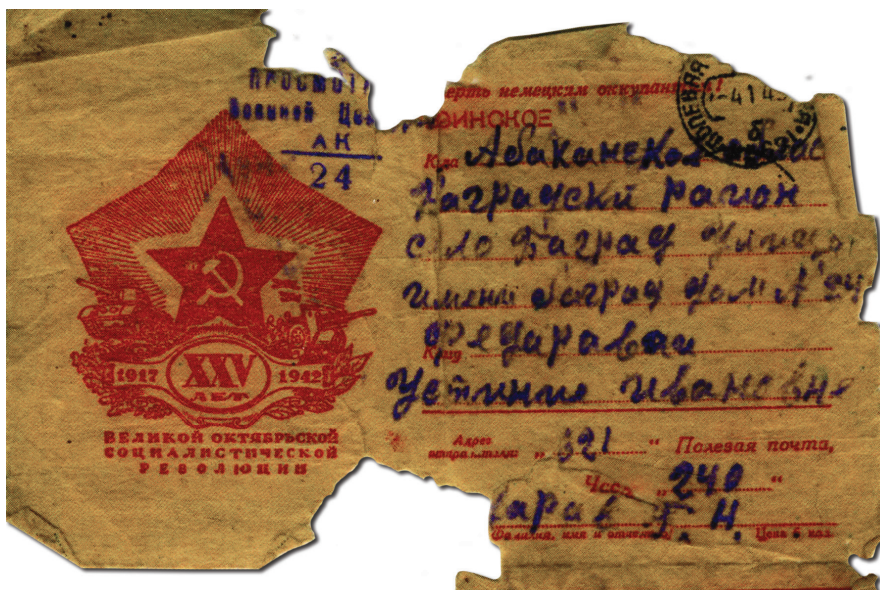 Военной
АК
24
1917 XXV 1942
ЛЕТ
ВЕЛИКОЙ ОКТЯБРЬСКОЙ
СОЦИАЛИСТИЧЕСКОЙ
РЕВОЛЮЦИИ
ерть немецким оккупантам!
ИНСКОЕ
ПОЛЕВАЯ
Куда Абаканская
Баградски рагион
село Баград улица
имени Баград дом №
Кому Федаравай
Устинии Ивановне
Адрес
отправителя: „ 321 “ Полевая почта,
Часть „ 240 “
варав Г. Н.
Фамилия, имя и отчество Цена 5 коп.